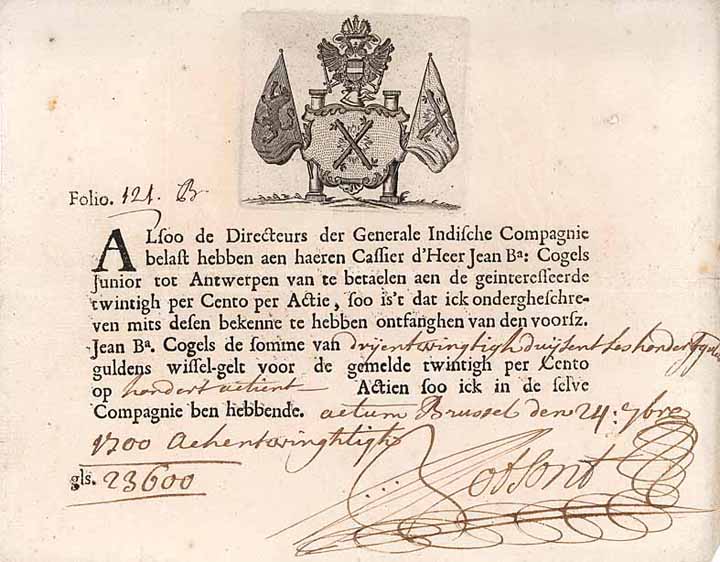 Folio. 121. B
ALsoo de Directeurs der Generale Indische Compagnie
belast hebben aen haeren Cassier d'Heer Jean Bª: Cogels
Junior tot Antwerpen van te betaelen aen de geinteresseerde
twintigh per Cento per Actie, soo is't dat ick ondergheschre-
ven mits desen bekenne te hebben ontfanghen van den voorsz.
Jean Bª. Cogels de somme van drijentwingtigh duijsent ses hondert
guldens wissel-gelt voor de gemelde twintigh per Cento
op hondert actient Actien soo ick in de selve
Compagnie ben hebbende. actum Brussel den 24: 7bre
1700 Achentwinghtigh
gls. 23600